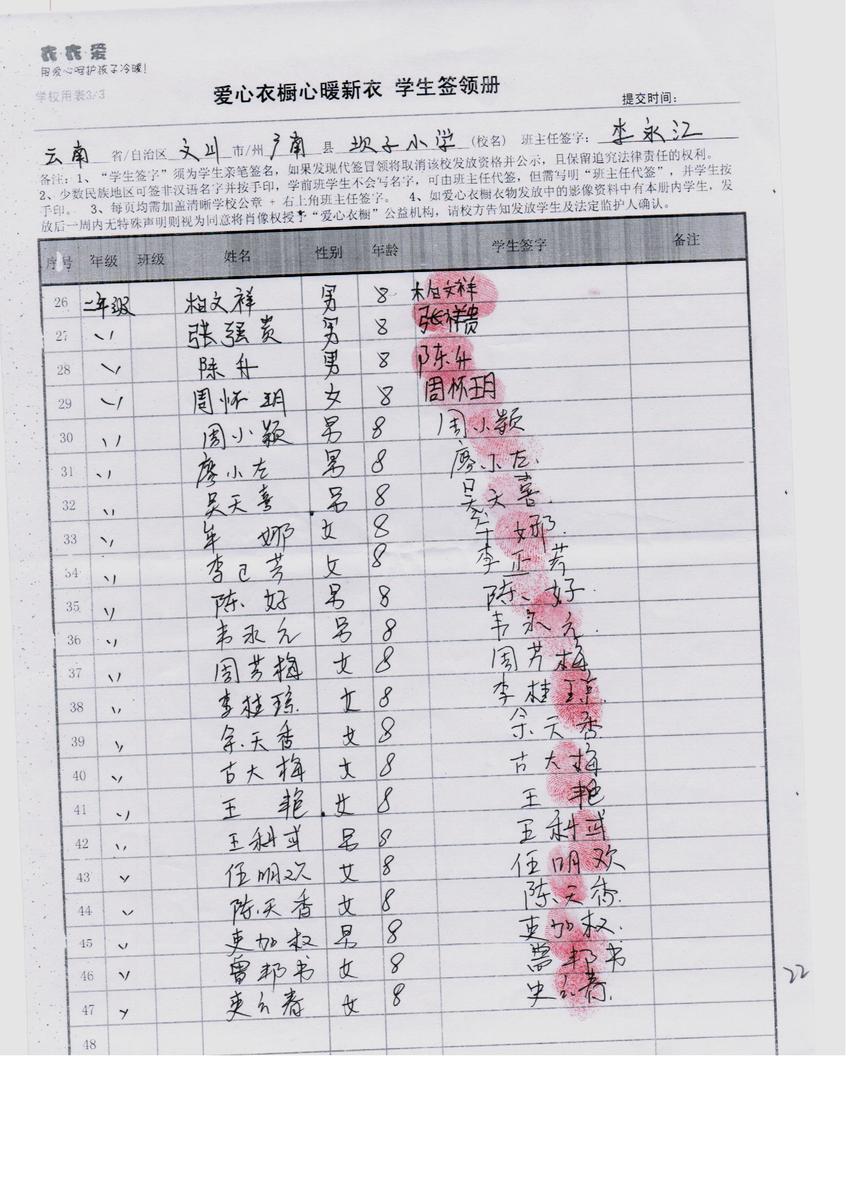 衣·衣·爱
用爱心呵护孩子冷暖!
学校用表3/3
爱心衣橱心暖新衣 学生签领册
提交时间:
云南 省/自治区 文山 市/州 广南 县 坝子小学 (校名) 班主任签字: 李永江
备注:1、“学生签字”须为学生亲笔签名,如果发现代签冒领将取消该校发放资格并公示,且保留追究法律责任的权利。
2、少数民族地区可签非汉语名字并按手印,学前班学生不会写名字,可由班主任代签,但需写明“班主任代签”,并学生按
手印。 3、每页均需加盖清晰学校公章 + 右上角班主任签字。 4、如爱心衣橱衣物发放中的影像资料中有本册内学生,发
放后一周内无特殊声明则视为同意将肖像权授予“爱心衣橱”公益机构,请校方告知发放学生及法定监护人确认。
序号 年级 班级 姓名 性别 年龄 学生签字 备注
26 二年级 柏文祥 男 8 柏文祥
27 〃 张强贵 男 8 张祥贵
28 〃 陈升 男 8 陈升
29 〃 周怀玥 女 8 周怀玥
30 〃 周小颖 男 8 周小颖
31 〃 廖小左 男 8 廖小左
32 〃 吴天喜 男 8 吴文喜
33 〃 牟娜 女 8 牟娜
34 〃 李已芳 女 8 李正芳
35 〃 陈好 男 8 陈好
36 〃 韦永元 男 8 韦永元
37 〃 周芳梅 女 8 周芳梅
38 〃 李桂琼 女 8 李桂琼
39 〃 余天香 女 8 余天香
40 〃 古大梅 女 8 古大梅
41 〃 王艳 女 8 王艳
42 〃 王科或 男 8 王科或
43 〃 任明欢 女 8 任明欢
44 〃 陈天香 女 8 陈天香
45 〃 吏加权 男 8 吏加权
46 〃 曾邦书 女 8 邦书
47 〃 春 女 8 史 春
48
22